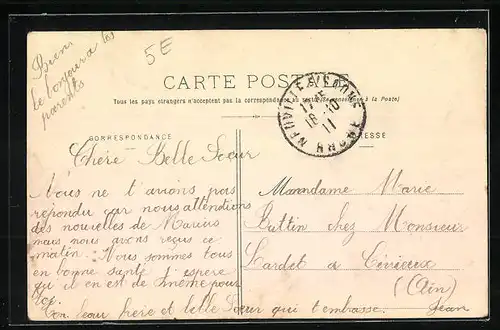 Bien
le bonjour a tes
parents
5E
CARTE POSTALE
Tous les pays étrangers n'acceptent pas la correspondance au recto (Se renseigner à la Poste)
CORRESPONDANCE
ADRESSE
NEUVILLE-S-SAONE
17 15
18 -10
11
RHONE
Chère Belle Sœur
Nous ne t'avions pas
repondu car nous attendions
des nouvelles de Marius
mais nous avons reçus ce
matin. Nous sommes tous
en bonne santé t'espere
qu'il en est de même pour
toi.
Ton beau frere et belle Sœur qui t'embasse. Jean
Mamdame Marie
Buttin chez Monsieur
Lardet a Civrieux
(Ain)